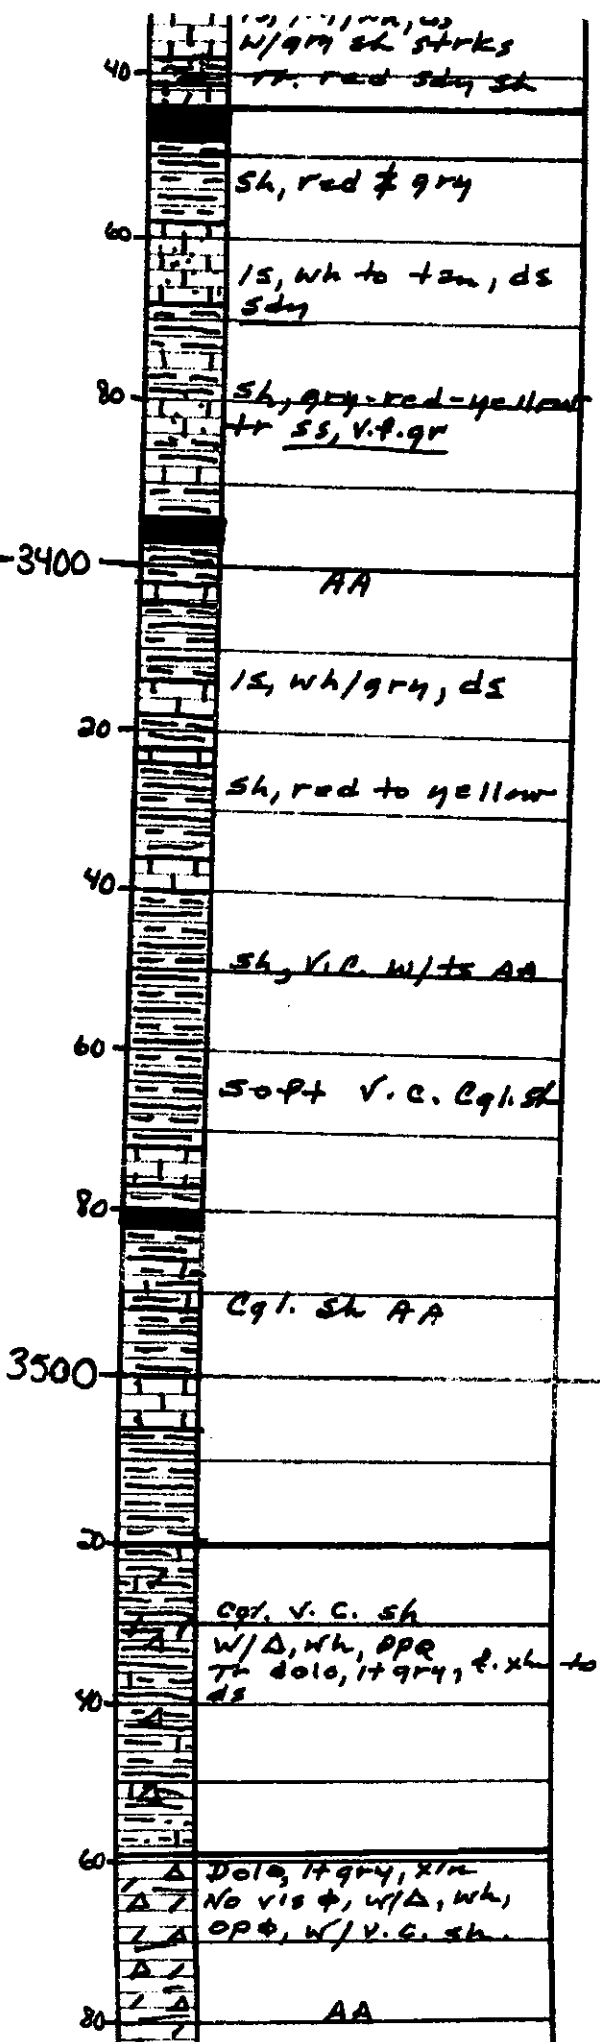 w/gry sh strks
40
tr. red sdy sh
sh, red & gry
60
ls, wh to tan, ds
sdy
80
sh, gry-red-yellow
tr ss, v.f.gr
-3400
AA
ls, wh/gry, ds
20
sh, red to yellow
40
sh, v.c. w/ ts AA
60
soft v.c. Cgl. sh
80
Cgl. sh AA
3500
20
Cgl. v.c. sh
w/Δ, wh, opq
Tr dolo, lt gry, f.xln to
40
ds
60
Dolo, lt gry, xln
No vis φ, w/Δ, wh,
opφ, w/ v.c. sh.
80
AA